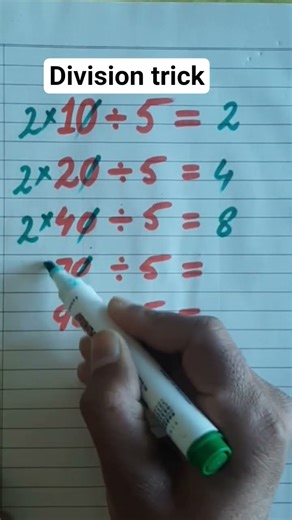 Division trick
2×10÷5=2
2×20÷5=4
2×40÷5=8
70÷5=
5=